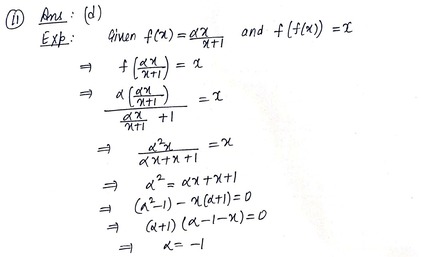 (11) Ans : (d)
Exp : Given f(x) = αx/(x+1) and f(f(x)) = x
⇒ f(αx/(x+1)) = x
⇒ (α(αx/(x+1)))/(αx/(x+1) + 1) = x
⇒ α²x/(αx+x+1) = x
⇒ α² = αx+x+1
⇒ (α²-1) - x(α+1) = 0
⇒ (α+1) (α-1-x) = 0
⇒ α = -1